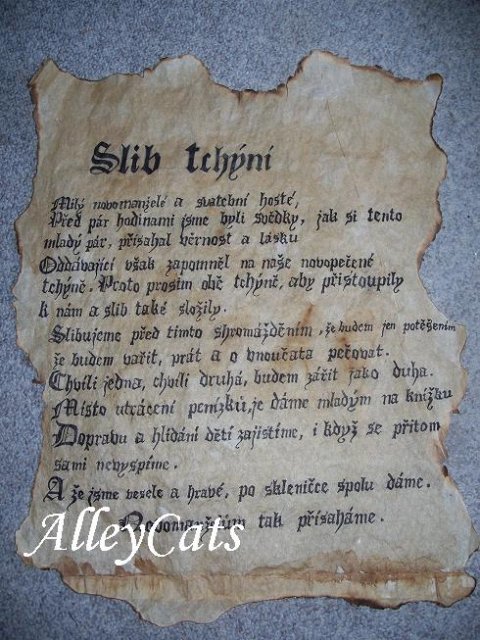 Slib tchýní
Milý novomanželé a svatební hosté,
Před pár hodinami jsme byli svědky, jak si tento
mladý pár, přísahal věrnost a lásku
Oddávající však zapomněl na naše novopečené
tchýně. Proto prosím obě tchýně, aby přistoupily
k nám a slib také složily.
Slibujeme před tímto shromážděním, že budem jen potěšením
že budem vařit, prát a o vnoučata pečovat.
Chvíli jedna, chvíli druhá, budem zářit jako duha.
Místo utrácení penízků, je dáme mladým na knížku
Dopravu a hlídání dětí zajistíme, i když se přitom
sami nevyspíme.
A že jsme vesele a hravé, po skleničce spolu dáme.
Novomanželům tak přísaháme.
AlleyCats